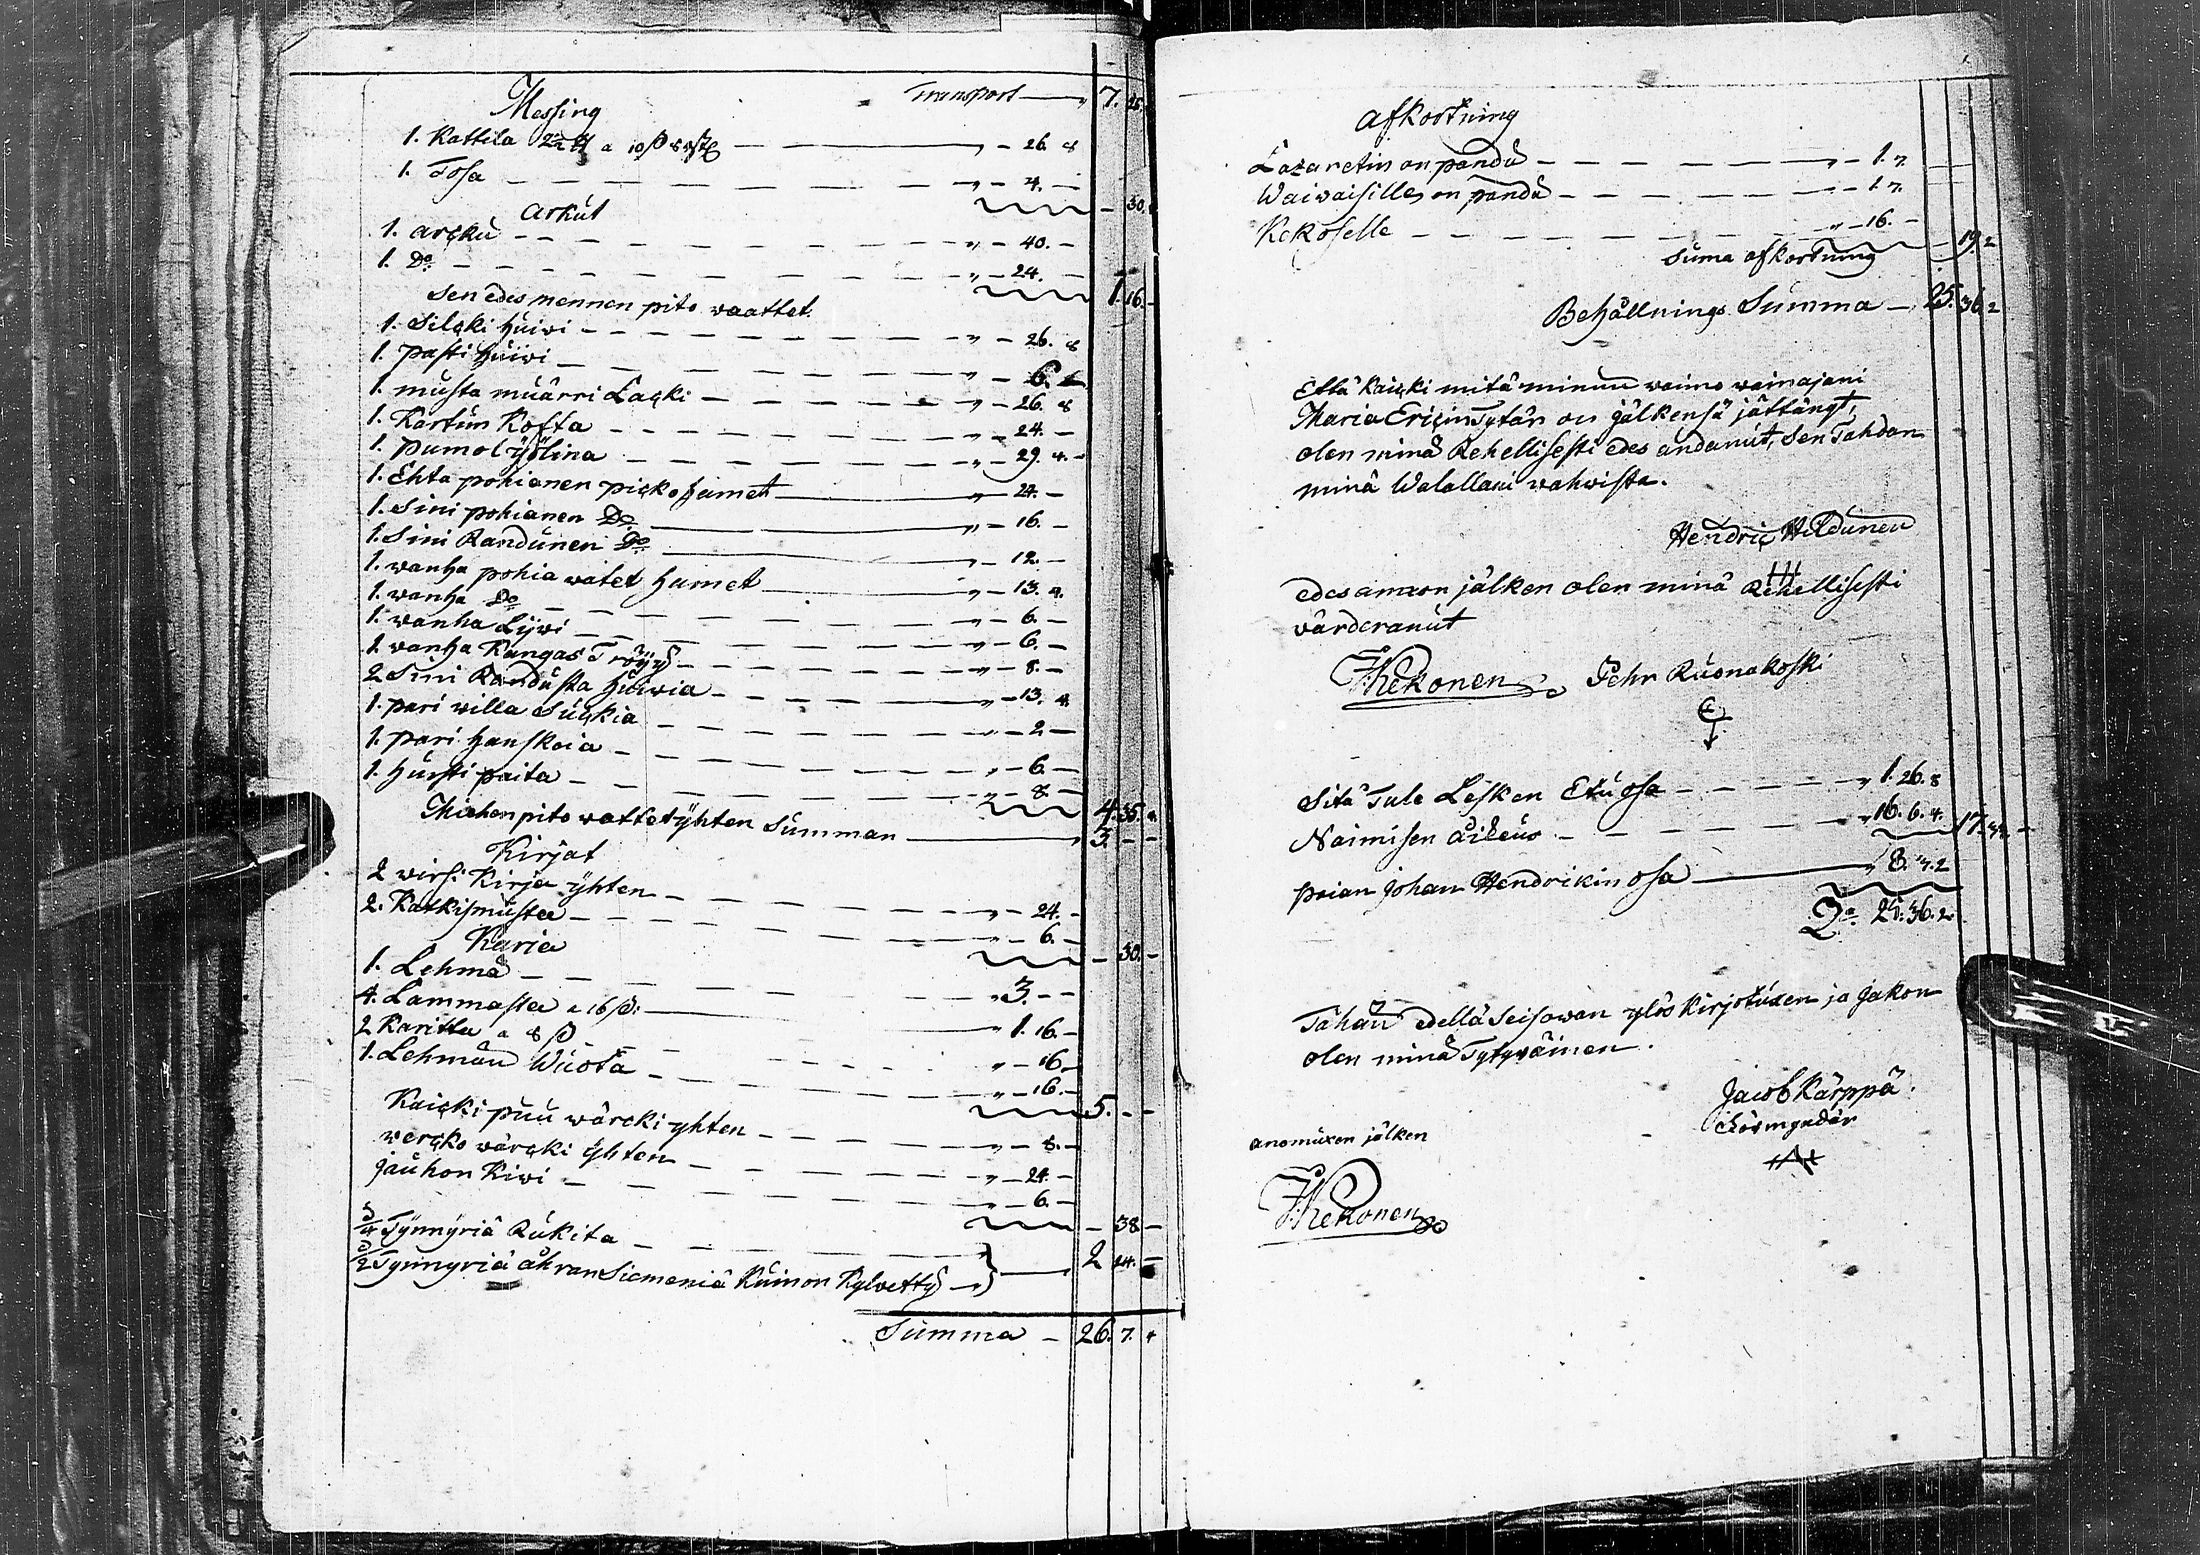 Transport — „ 7. 25.
Messing
1. Kattila 2½ ℔ a 10 ß — „ — 26. 8
1. Tosa — „ — 4. —
— 30.
Arkut
1. arcku — „ — 40. —
1. Do — „ — 24. —
1. 16. —
Sen edes mennen pito waattet
1. Silcki huiwi — „ — 26. 8
1. pasti huiwi — „ — 6.
1. musta muärri Lacki — „ — 26. 8
1. Kartun Kofta — „ — 24. —
1. Pumol — „ — 29. 4. —
1. Ehta pohianen picko hamet — „ — 24. —
1. Sini pohianen Do — „ — 16. —
1. Sini Randunen Do — „ — 12. —
1. wanha pohia watet hamet — „ — 13. 4.
1. wanha Do — „ — 6. —
1. wanha Lijwi — „ — 6. —
1. wanha Kangas Tröÿÿ — „ — 8. —
2 Sini Randusta huiwia — „ — 13. 4
1. pari willa Suckia — „ — 2 —
1. pari hanskoia — „ — 6. —
1. hursti paita — „ — 8. —
4. 35. 4.
Miehen pito wattet ÿhten Summan — „ 3. — —
Kirjat
2 wirsi Kirja ÿhten — „ — 24. —
2. Katkismusta — „ — 6. —
— 30. —
Karia
1. Lehmä — „ 3. — —
4. Lammasta a 16 ß: — „ 1. 16. —
2 Karitta a 8 ß — „ — 16. —
1. Lehmän Wuota — „ — 16. —
5. — —
Kaicki puu wärcki yhten — „ — 8. —
wercko wärcki ÿhten — „ — 24. —
jauhon Kiwi — „ — 6. —
— 38 —
Tÿnnÿriä Rukita —
Tynnyriä ahran Siemeniä Kuinon Kylwetty — 2 24. —
Summa — 26. 7. 4
Afkortning
Lazaretin on pandu — „ — 1. 7.
Waiwaisille on pandu — „ — 1. 7.
Kekoselle — „ — 16. —
Suma afkortning — 19. 2
Behållnings Summa — 25. 36 2
Että Kaicki mitä minun waimo wainajani
Maria Ericin Tytär on jälkensä jättängt,
olen minä Rehellisesti edes andanut, Sen Tahdon
minä Walallani wahwista.
Hendric Hildunen
edes annon jälken olen minä Rehellisesti
wärderanut
Kekonen Pehr Ruonakoski
Sitä Tule Lesken Etu osa — „ 1. 26. 8
Naimisen oikeus — „ 16. 6. 4. 17.
poian Johan Hendrikin osa — „ 8. 3. 2
25. 36. 2
Tähän edellä seisowan ylös Kirjotuxen ja jakon
olen minä Tytywäinen.
Jacob Kärppä.
förmyndär
anomuxen jälken
Kekonen